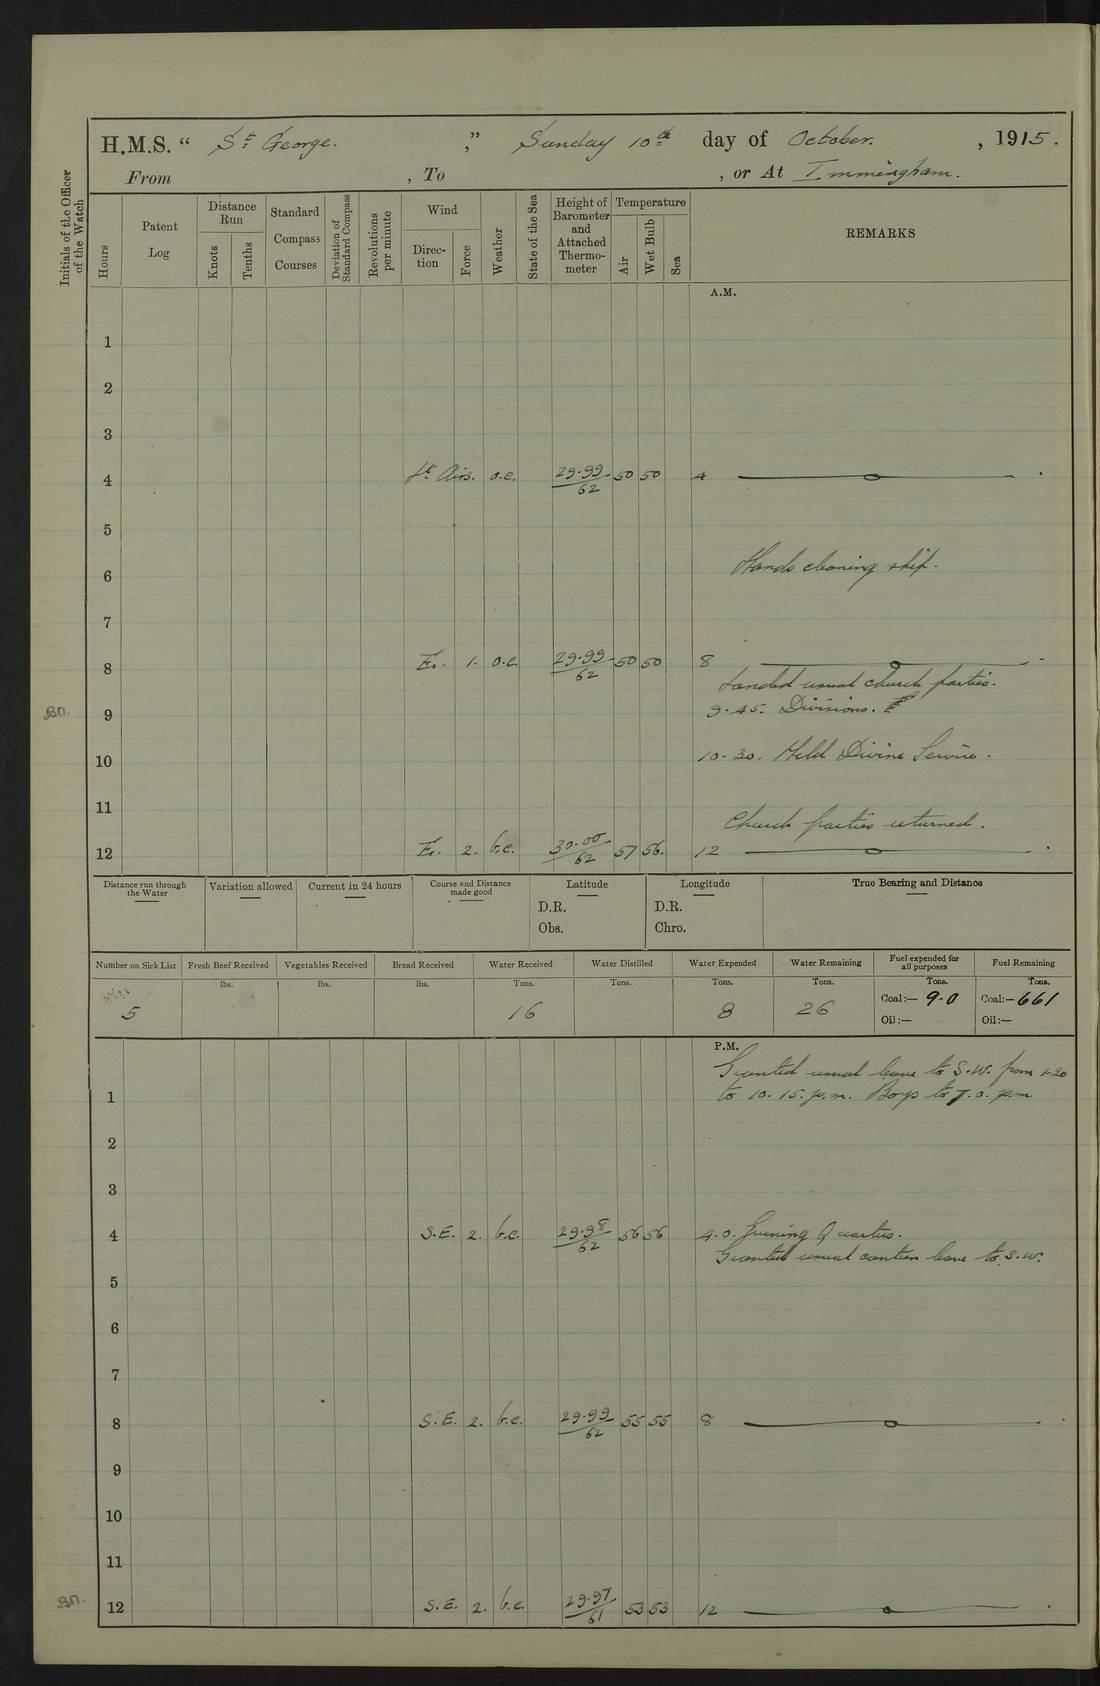 H.M.S. “ St George. ,” Sunday 10th day of October. , 1915.
From , To , or At Immingham.
Initials of the Officer of the Watch
Hours
Patent Log
Distance Run
Knots
Tenths
Standard Compass Courses
Deviation of Standard Compass
Revolutions per minute
Wind
Direc-tion
Force
Weather
State of the Sea
Height of Barometer and Attached Thermo-meter
Temperature
Air
Wet Bulb
Sea
REMARKS
A.M.
1
2
3
4 Lt Airs. o.c. 29.99/62 50 50 4
5
6 Hands cleaning ship.
7
8 E. 1. o.c. 29.99/62 50 50 8
Landed usual church parties.
B.M. 9 9.45. Divisions.
10 10.30. Held Divine Service.
11 Church parties returned.
12 E. 2. b.c. 30.00/62 57 56. 12
Distance run through the Water
Variation allowed
Current in 24 hours
Course and Distance made good
Latitude
D.R.
Obs.
Longitude
D.R.
Chro.
True Bearing and Distance
Number on Sick List
5
Fresh Beef Received
lbs.
Vegetables Received
lbs.
Bread Received
lbs.
Water Received
Tons.
16
Water Distilled
Tons.
Water Expended
Tons.
8
Water Remaining
Tons.
26
Fuel expended for all purposes
Tons.
Coal:— 9.0
Oil:—
Fuel Remaining
Tons.
Coal:— 661
Oil:—
P.M.
Granted usual leave to S.W. from 1.20
1 to 10.15. p.m. Boys to 7.0. pm
2
3
4 S.E. 2. b.c. 29.98/62 56 56 4.0. Evening Quarters.
Granted usual canteen leave to S.W.
5
6
7
8 S.E. 2. b.c. 29.99/62 55 55 8
9
10
11
B.M. 12 S.E. 2. b.c. 29.97/61 53 53 12